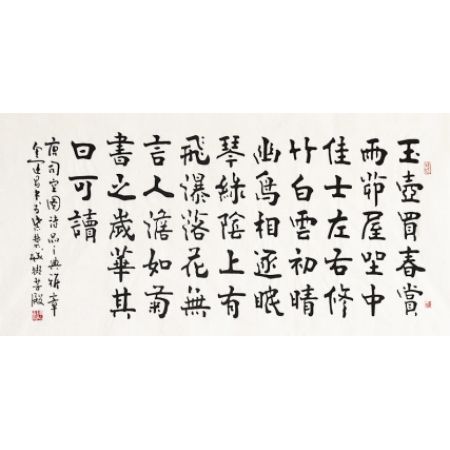 玉壺買春賞
雨茆屋坐中
佳士左右修
竹白雲初晴
幽鳥相逐眠
琴綠陰上有
飛瀑落花無
言人澹如菊
書之歲華其
曰可讀
唐司空圖詩品之典雅章
金運昌